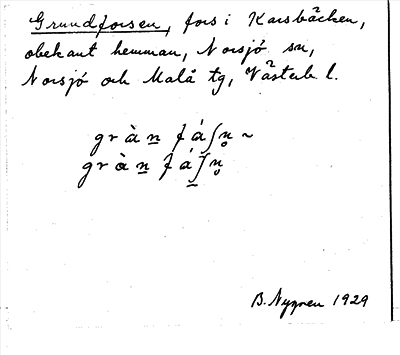 Grundforsen, fors i Karsbäcken,
obekant hemman, Norsjö sn,
Norsjö och Malå tg, Västerb. l.
gràn fáʃn̥ ~
gràn fáʃn̥
B. Nygren 1929